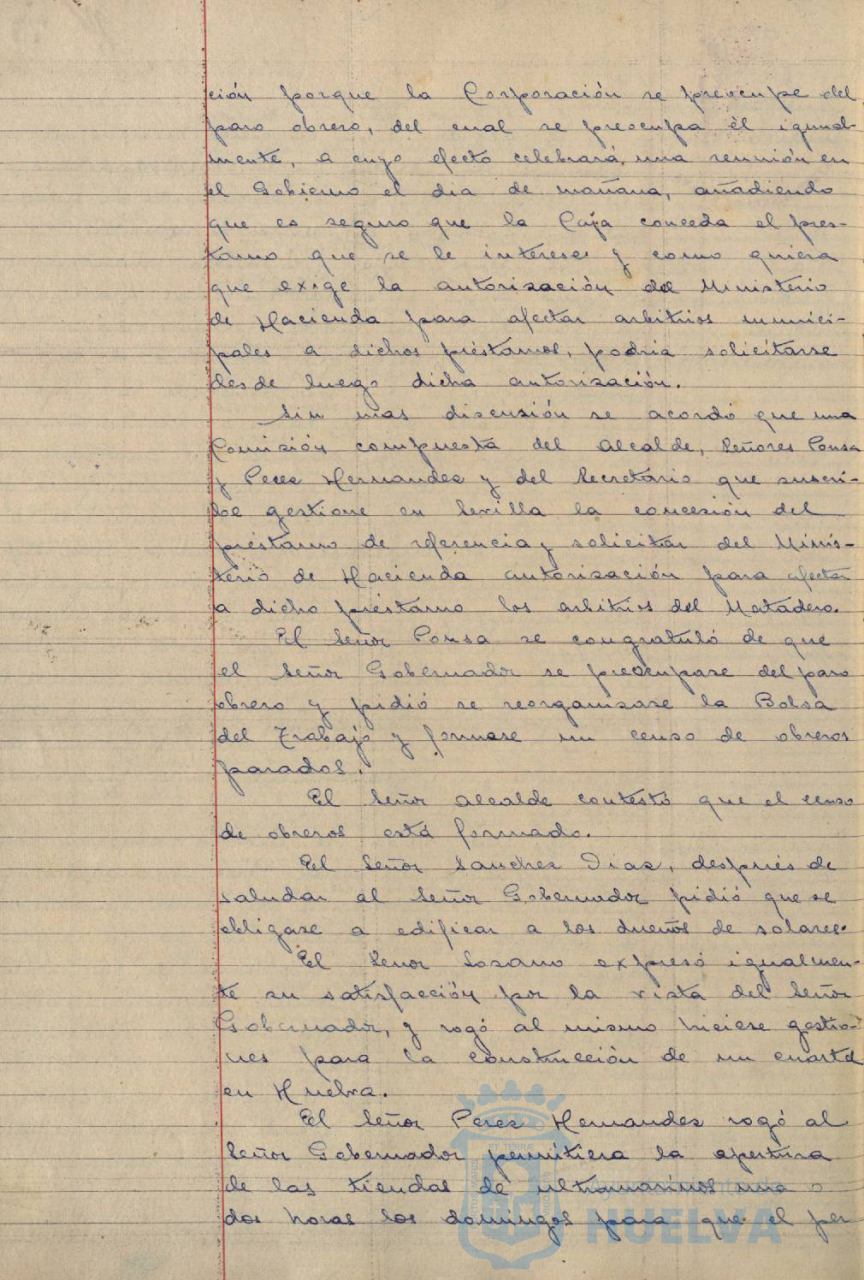 ción porque la Corporación se preocupe del
paro obrero, del cual se preocupa él igual-
mente, a cuyo efecto celebrará una reunión en
el Gobierno el dia de mañana, añadiendo
que es seguro que la Caja conceda el pres-
tamo que se le interese y como quiera
que exige la autorización del Ministerio
de Hacienda para afectar arbitrios munici-
pales a dichos préstamos, podria solicitarse
desde luego dicha autorización.
Sin mas discusión se acordó que una
Comisión compuesta del Alcalde, Señores Ponsa
y Perez Hernandez y del Secretario que suscri-
be gestione en Sevilla la concesión del
préstamo de referencia y solicitar del Minis-
terio de Hacienda autorización para afectar
a dicho préstamo los arbitrios del Matadero.
El Señor Ponsa se congratuló de que
el Señor Gobernador se preocupase del paro
obrero y pidió se reorganizase la Bolsa
del Trabajo y formase un censo de obreros
parados.
El Señor Alcalde contestó que el censo
de obreros está formado.
El Señor Sanchez Diaz, después de
saludar al Señor Gobernador pidió que se
obligase a edificar a los dueños de solares.
El Señor Lozano expresó igualmen-
te su satisfacción por la vista del Señor
Gobernador, y rogó al mismo hiciese gestio-
nes para la construcción de un cuartel
en Huelva.
El Señor Perez Hernandez rogó al
Señor Gobernador permitiera la apertura
de las tiendas de ultramarinos una o
dos horas los domingos para que el per
HUELVA